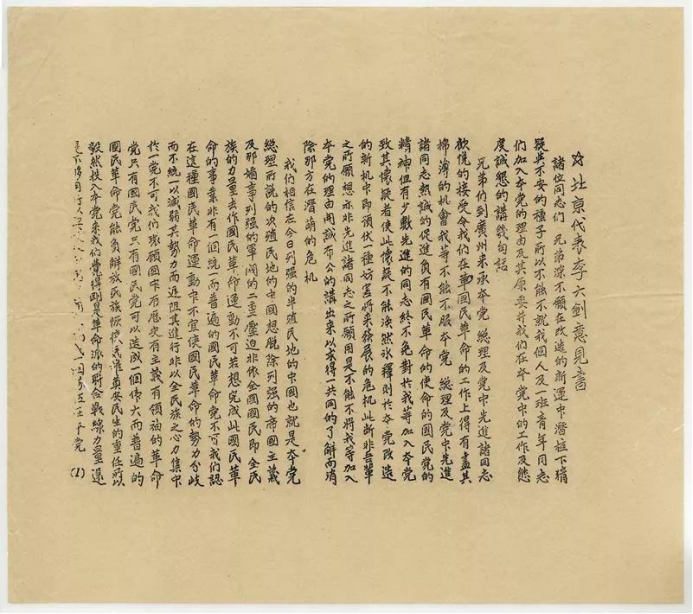 ☆北京代表李大釗意見書
諸位同志們 兄弟深不願在改造的新運中潛植下猜
疑與不安的種子所以不能不就我個人及一班青年同志
們加入本黨的理由及其原委並我們在本黨中的工作及態
度誠懇的講幾句話
兄弟們到廣州來承本黨 總理及黨中先進諸同志
歡悅的接受令我們在國民革命的工作上得有盡其
棉薄的機會我等不能不服本黨 總理及黨中先進
諸同志熱誠的促進負有國民革命的使命的國民黨的
精神但有少數先進的同志終不免對於我等加入本黨
致其懷疑者使此懷疑不能渙然冰釋則於本黨改造
的新機中即預伏一種妨害將來發展的危機此斷非吾輩
之所願想亦非先進諸同志之所願用是不能不將我等加入
本黨的理由開誠布公的講出來以求得一共同的了解而消
除那方在潛萌的危機
我們相信在今日列強的半殖民地的中國也就是本黨
總理所說的次殖民地的中國想脫除列強的帝國主義
及那媚事列強的軍閥的二重壓迫非依全國國民即全民
族的力量去作國民革命運動不可若想完成此國民革
命的事業非有一個統一而普遍的國民革命黨不可我們認
在這種國民革命運動中不宜使國民革命的勢力分歧
而不統一以減弱其勢力而遲阻其進行非以全民族之心力集中
於一黨不可我們環顧國中有歷史有主義有領袖的革命
黨只有國民黨只有國民黨可以造成一個偉大而普遍的
國民革命黨能負解放民族恢復民權奠安民生的重任所以
毅然投入本黨來我們覺得剛是革命派的聯合戰線力量還
(1)